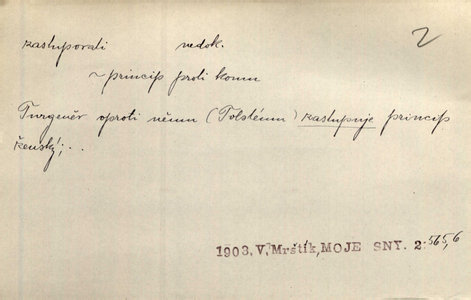 zastupovati nedok. 2
~ princip proti komu
Turgeněv oproti němu (Tolstému) zastupuje princip
ženský; . .
1903, V. Mrštík, MOJE SNY. 2: 565,6